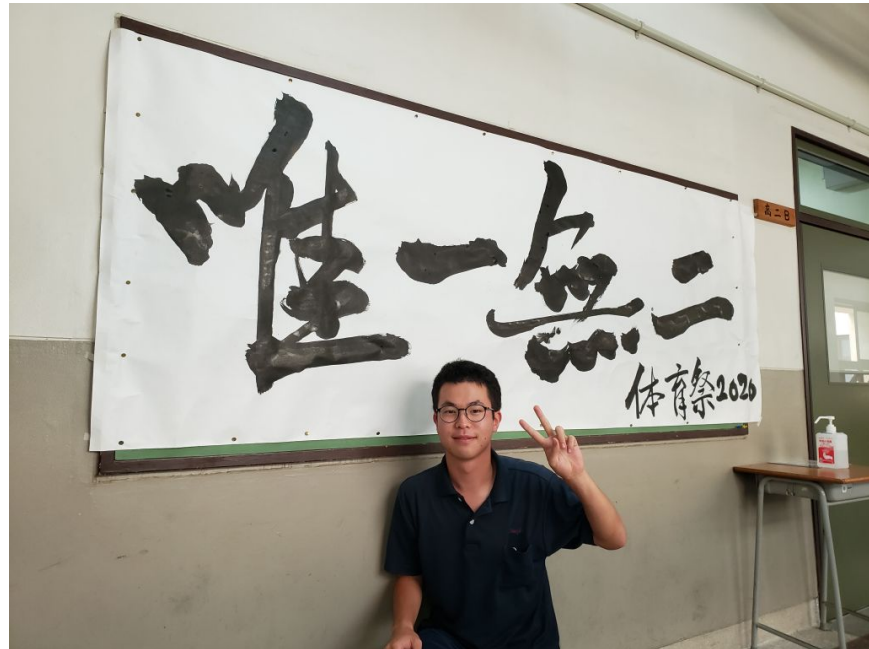 唯一無二
体育祭2020
高二B